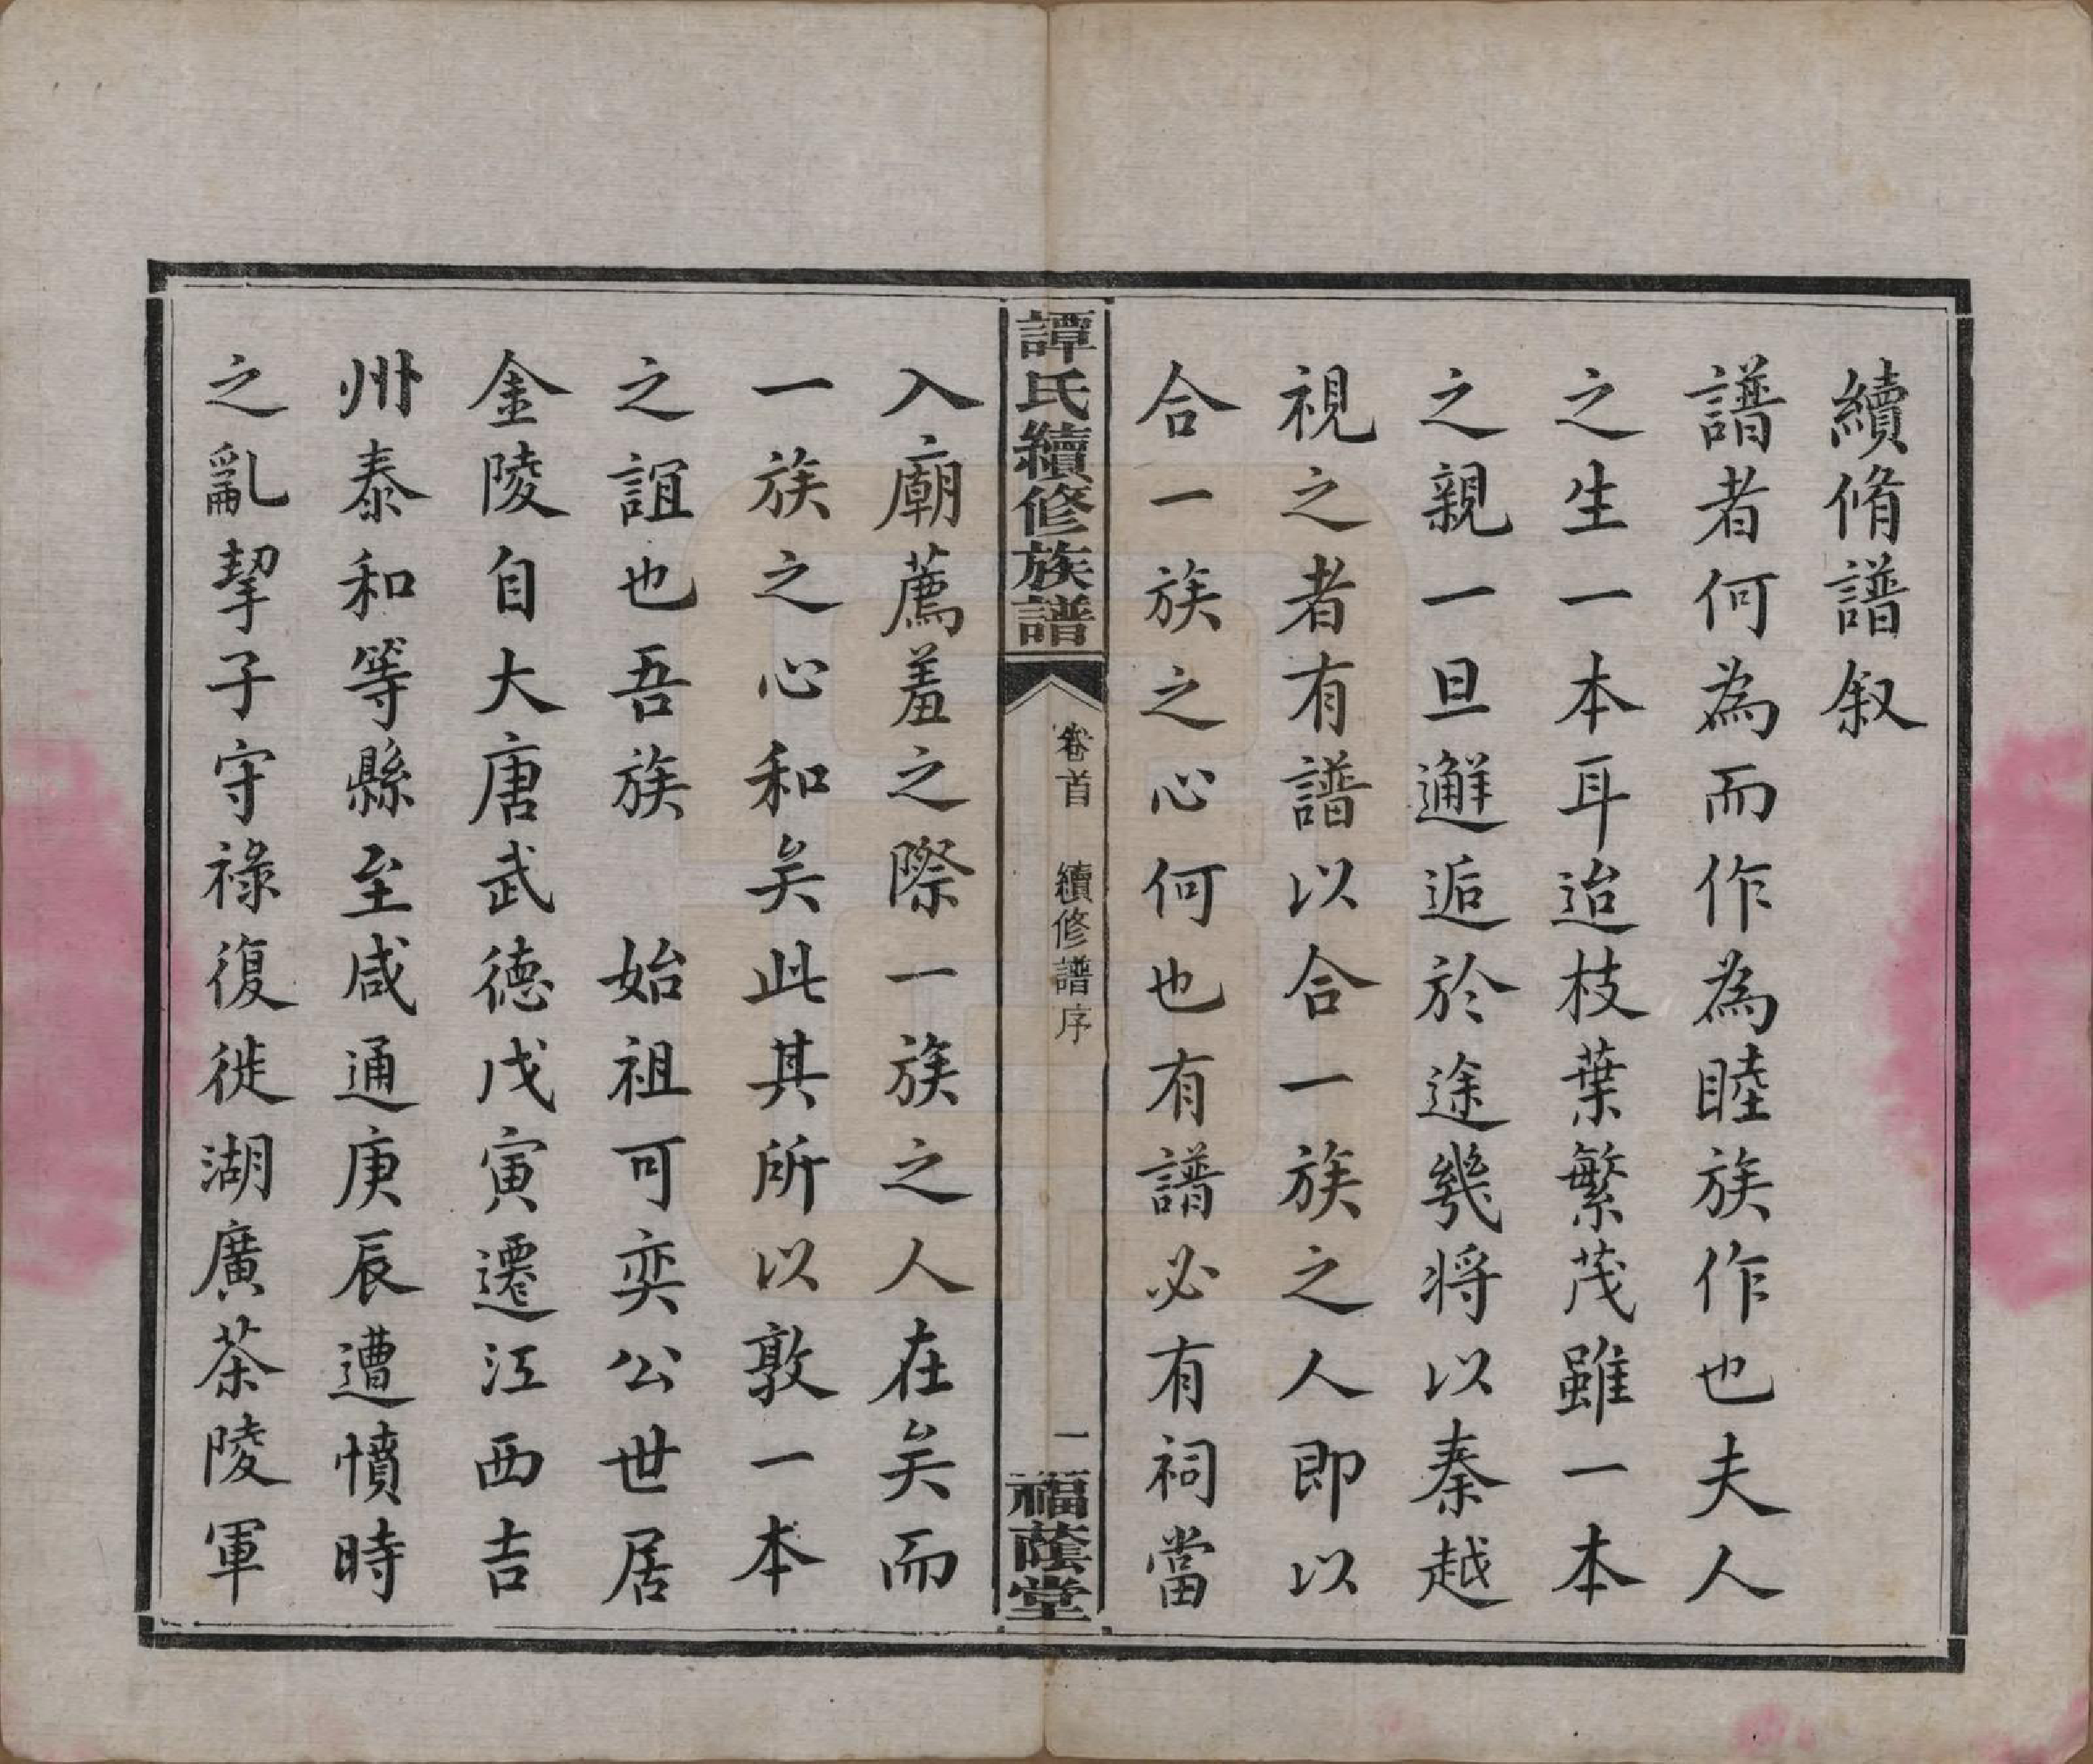 續脩譜叙
譜者何為而作為睦族作也夫人
之生一本耳迨枝葉繁茂雖一本
之親一旦邂逅於途幾將以秦越
視之者有譜以合一族之人即以
合一族之心何也有譜必有祠當
譚氏續修族譜
卷首 續修譜序
一
福蔭堂
入廟薦羞之際一族之人在矣而
一族之心和矣此其所以敦一本
之誼也吾族 始祖可奕公世居
金陵自大唐武德戊寅遷江西吉
州泰和等縣至咸通庚辰遭憤時
之亂挈子守祿復徙湖廣茶陵軍